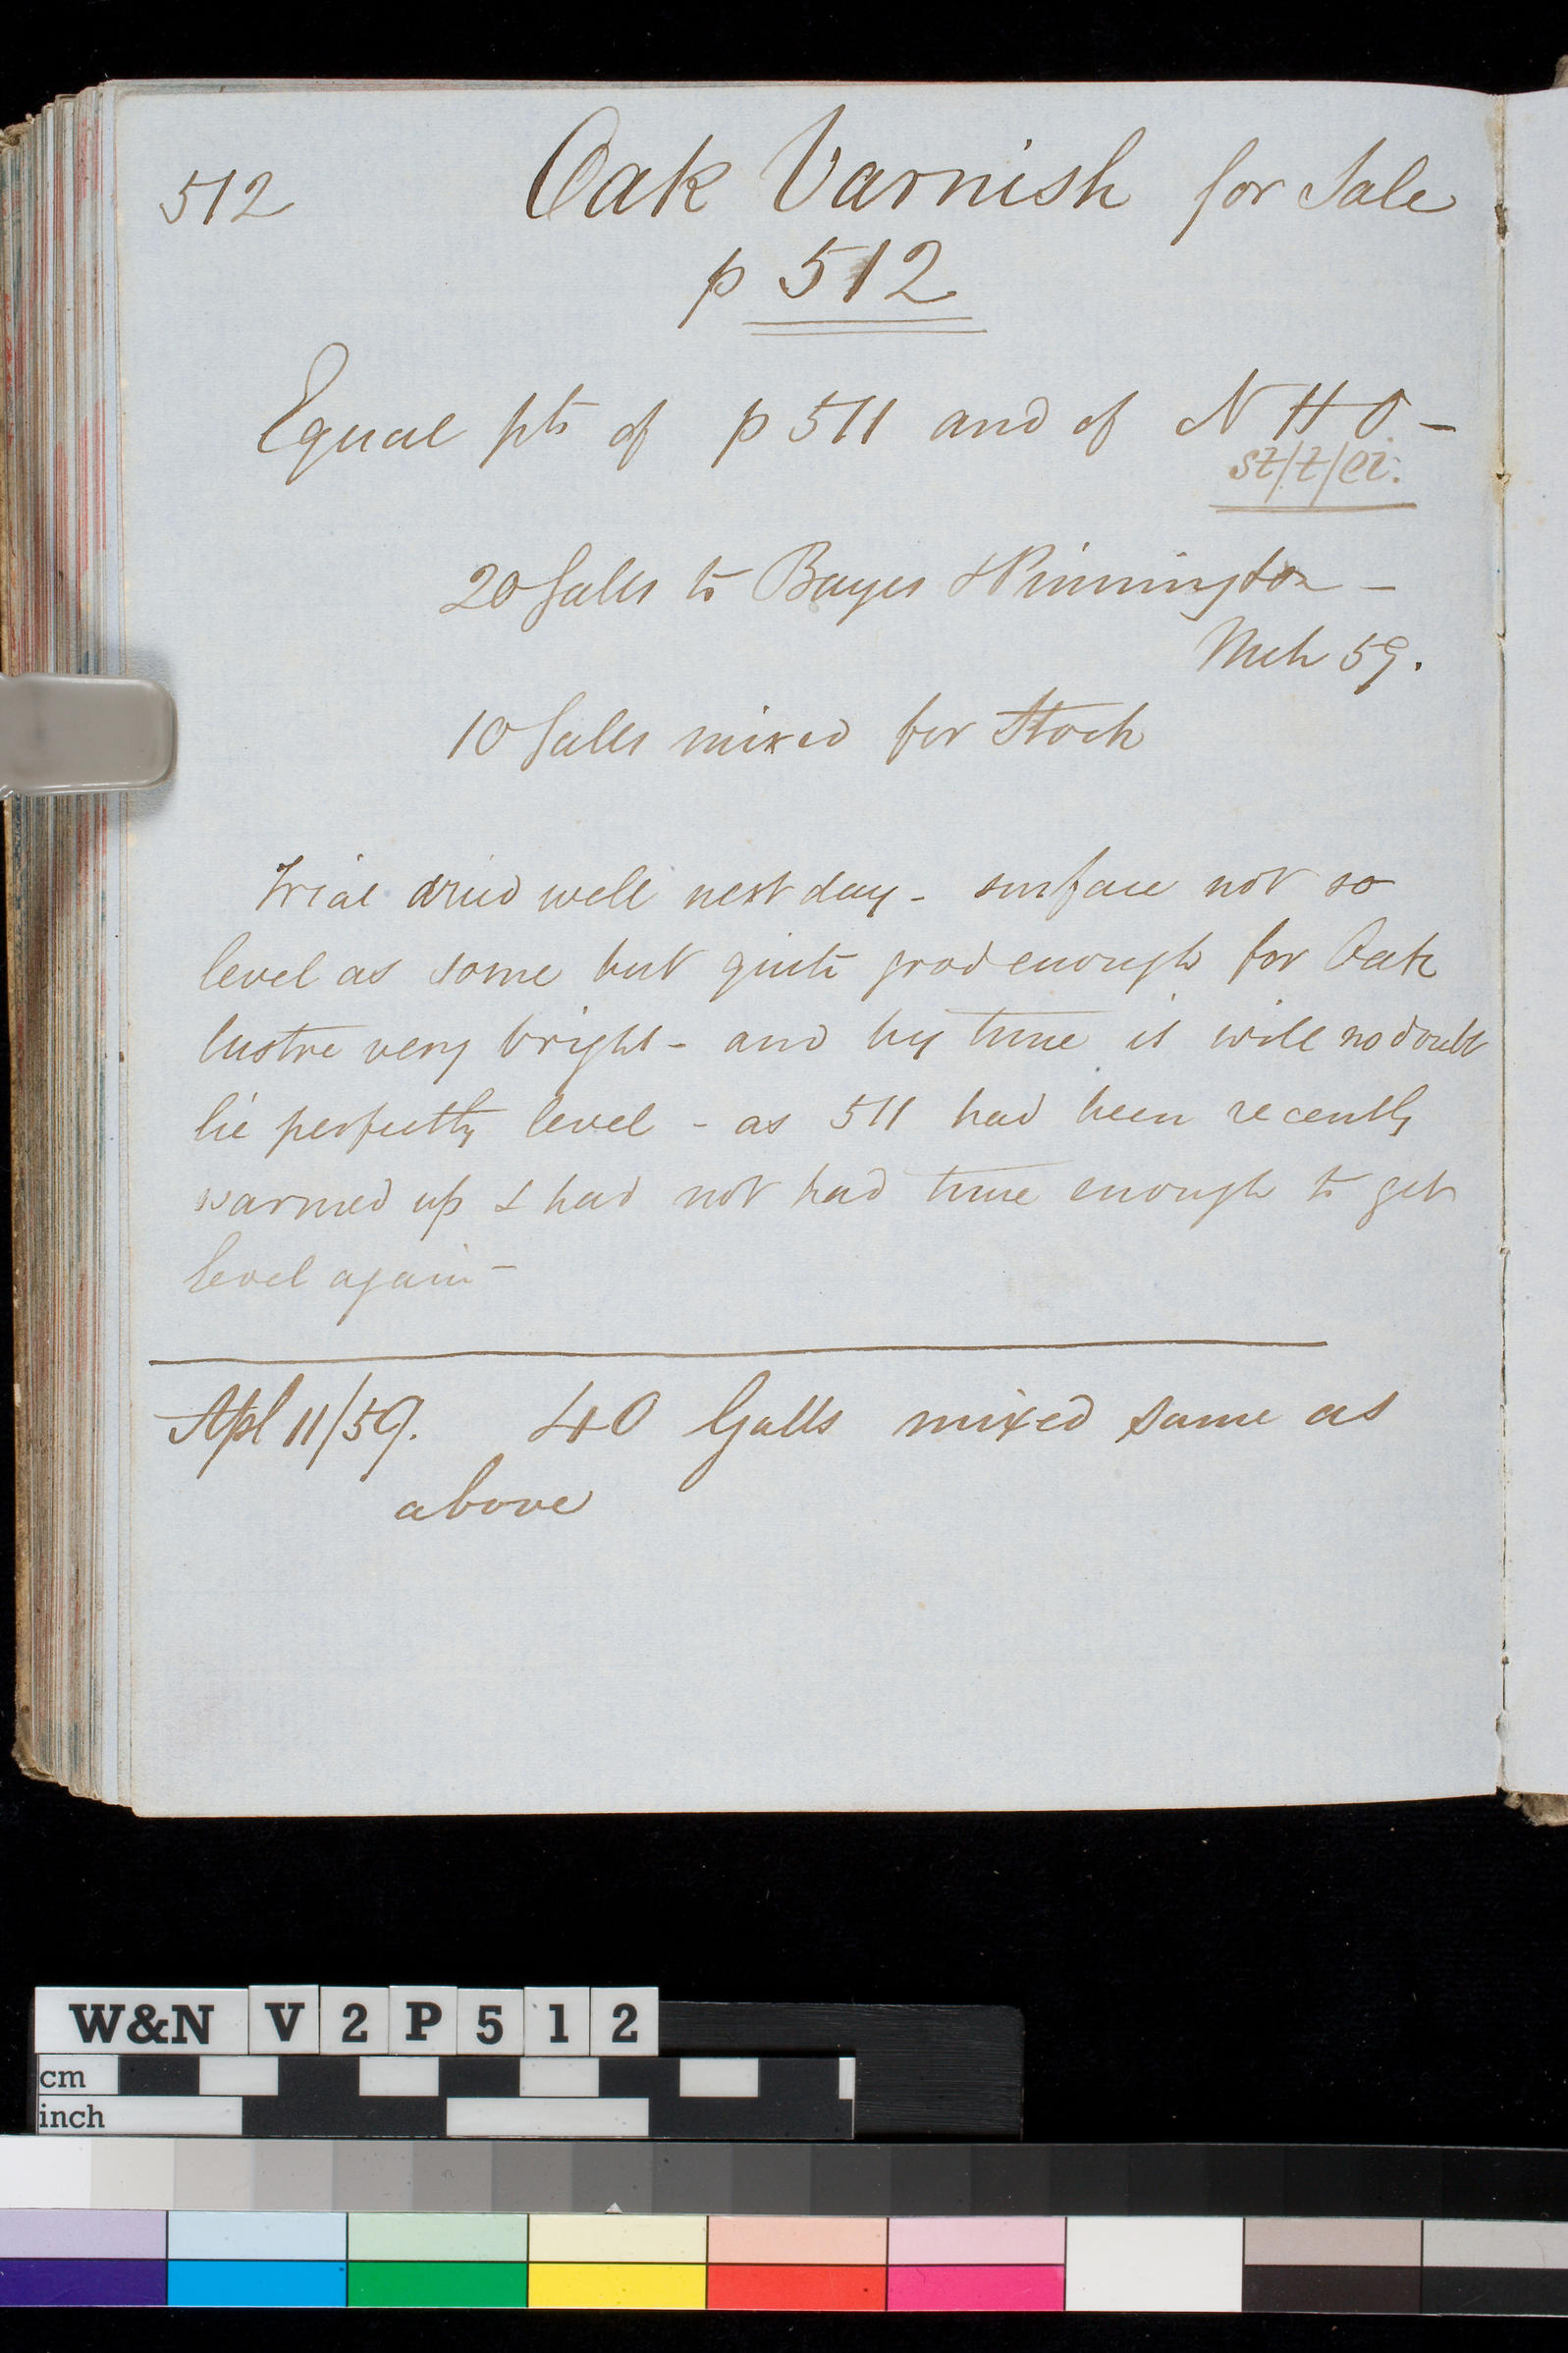 512 Oak Varnish for Sale
p 512
Equal pts of p 511 and of N H O -
20 Galls to Bayes & Pinnington -
Mch 59.
10 Galls mixed for Stock
Trial dried well next day - surface not so
level as some but quite good enough for Oak
lustre very bright - and by time it will no doubt
lie perfectly level - as 511 had been recently
warmed up & had not had time enough to get
level again -
Apl 11/59. 40 Galls mixed same as
above
W&N V 2 P 5 1 2
cm
inch